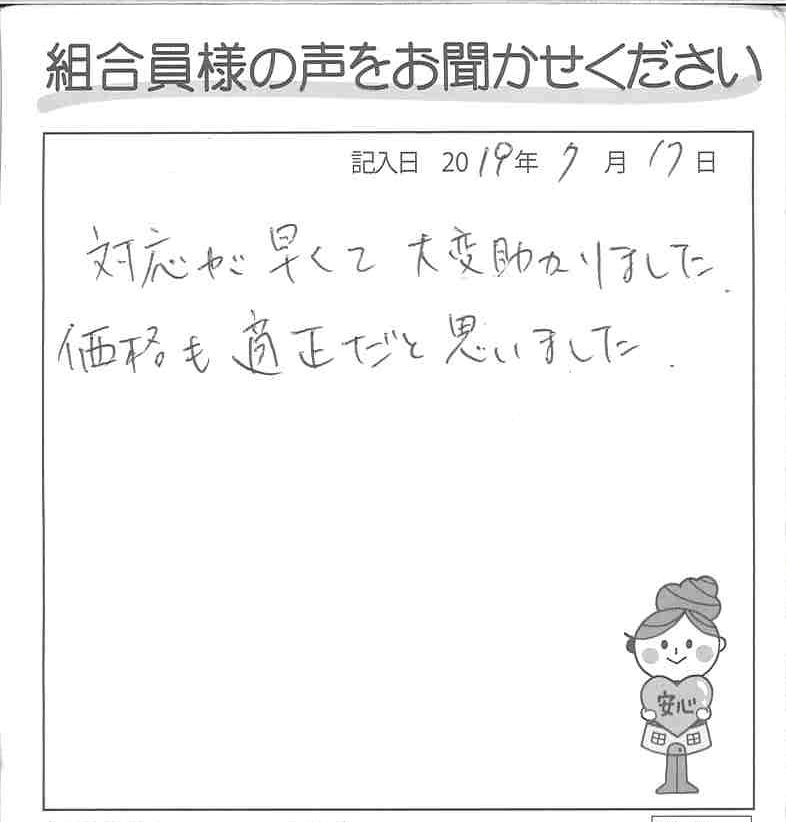 組合員様の声をお聞かせください
記入日 2019年 7月 17日
対応が早くて 大変助かりました.
価格も適正だと思いました.
安心